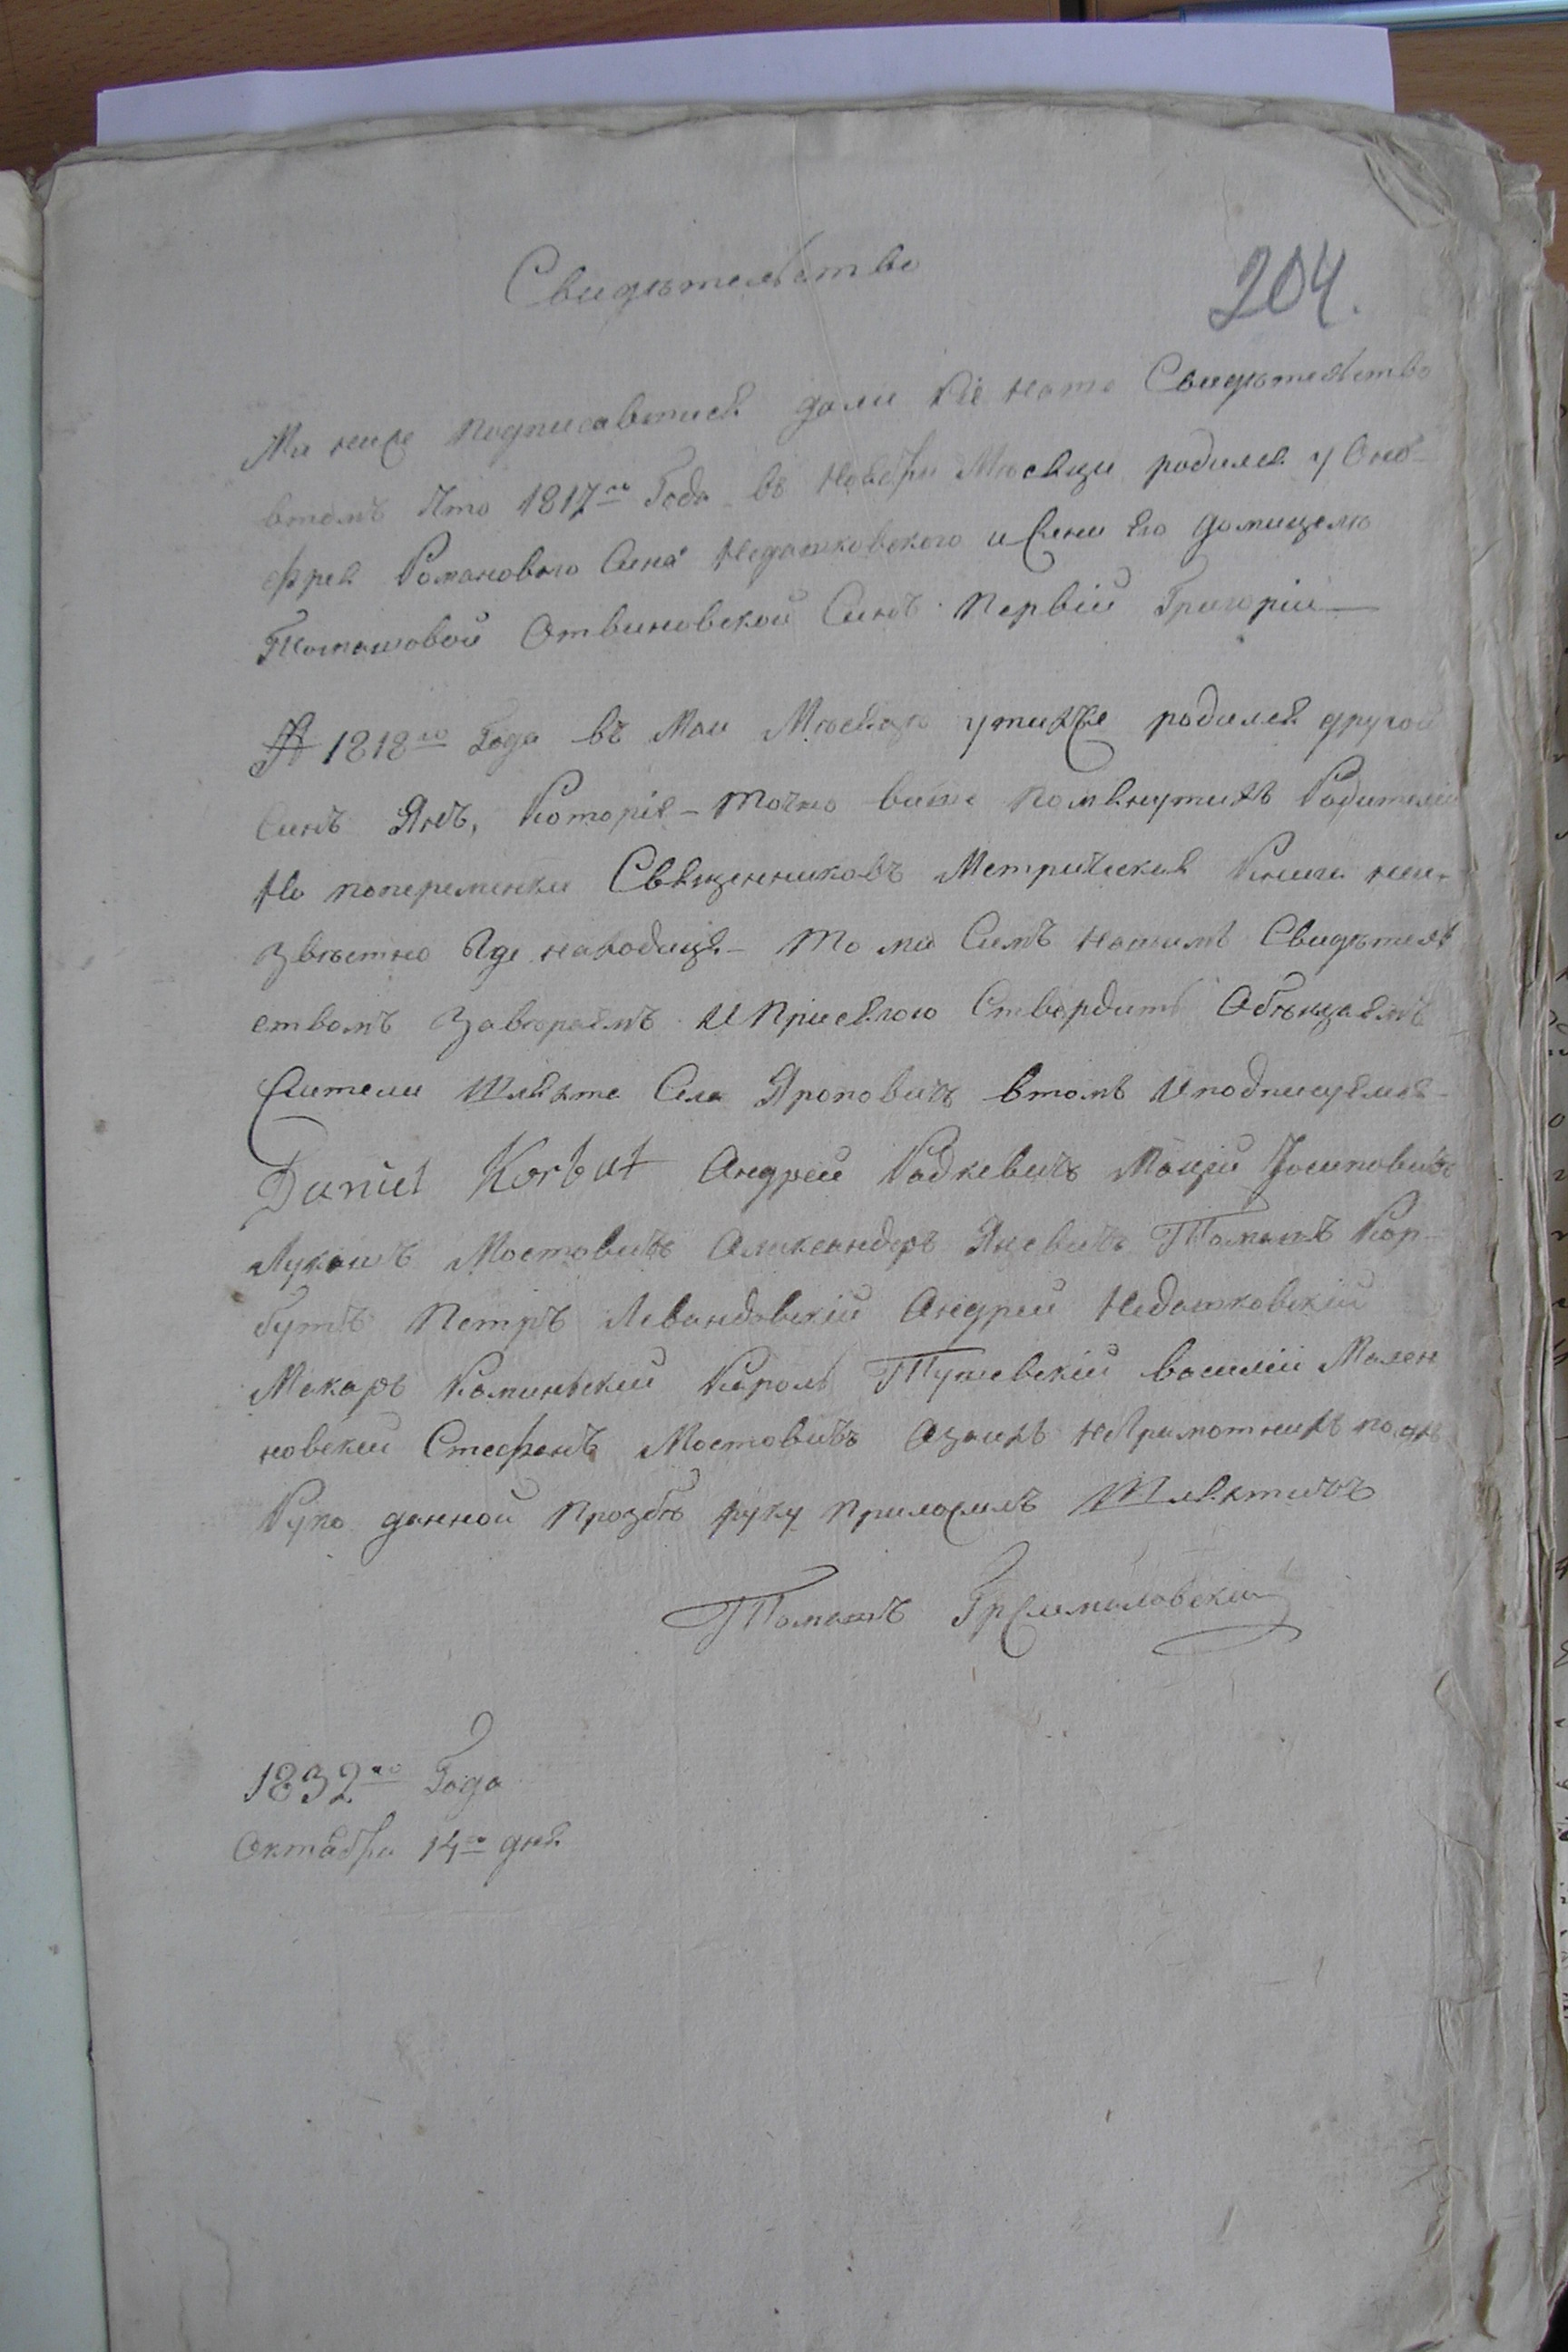 Свидѣтельство
204.
Ми ниже подписавшися дали сіе наше Свидѣтельство
втомъ что 1817го Года въ Ноябри Мѣсяци родился у Оно-
фрея Романового Сина Недашковского и Жени Его Домицелѣ
Томашовой Отвиновской Синъ Первій Григорій —
А 1818го Года въ Маи Мѣсяцѣ утихже родился другой
Синъ Янъ, Которіе — точно више помянутихъ Родителей
Но попеременки Священниковъ Метрическая Книги неи-
звѣстно Где находиця — То ми Симъ нашимъ Свидѣтель
ствомъ Заверяемъ И Присягою Ствердить Обѣщаемъ
Жители Шляхта Села Яроповичъ втомъ И подписуемся —
Daniel Korbut Андрей Радкевичъ Мацѣй Юсиповичъ
Лукашъ Мостовичъ Александеръ Яцевичъ Томашъ Кор-
бутъ Петръ Левандовскій Андрей Недашковскій
Макаръ Каминьскій Кароль Тушевскій Василій Мален
новский Стефанъ Мостовичъ Азаихъ неграмотнихъ по ихъ
Руко данной Прозбѣ руку приложилъ Шляхтичъ
Томашъ Гржималовский
1832го Года
Октября 14го дня